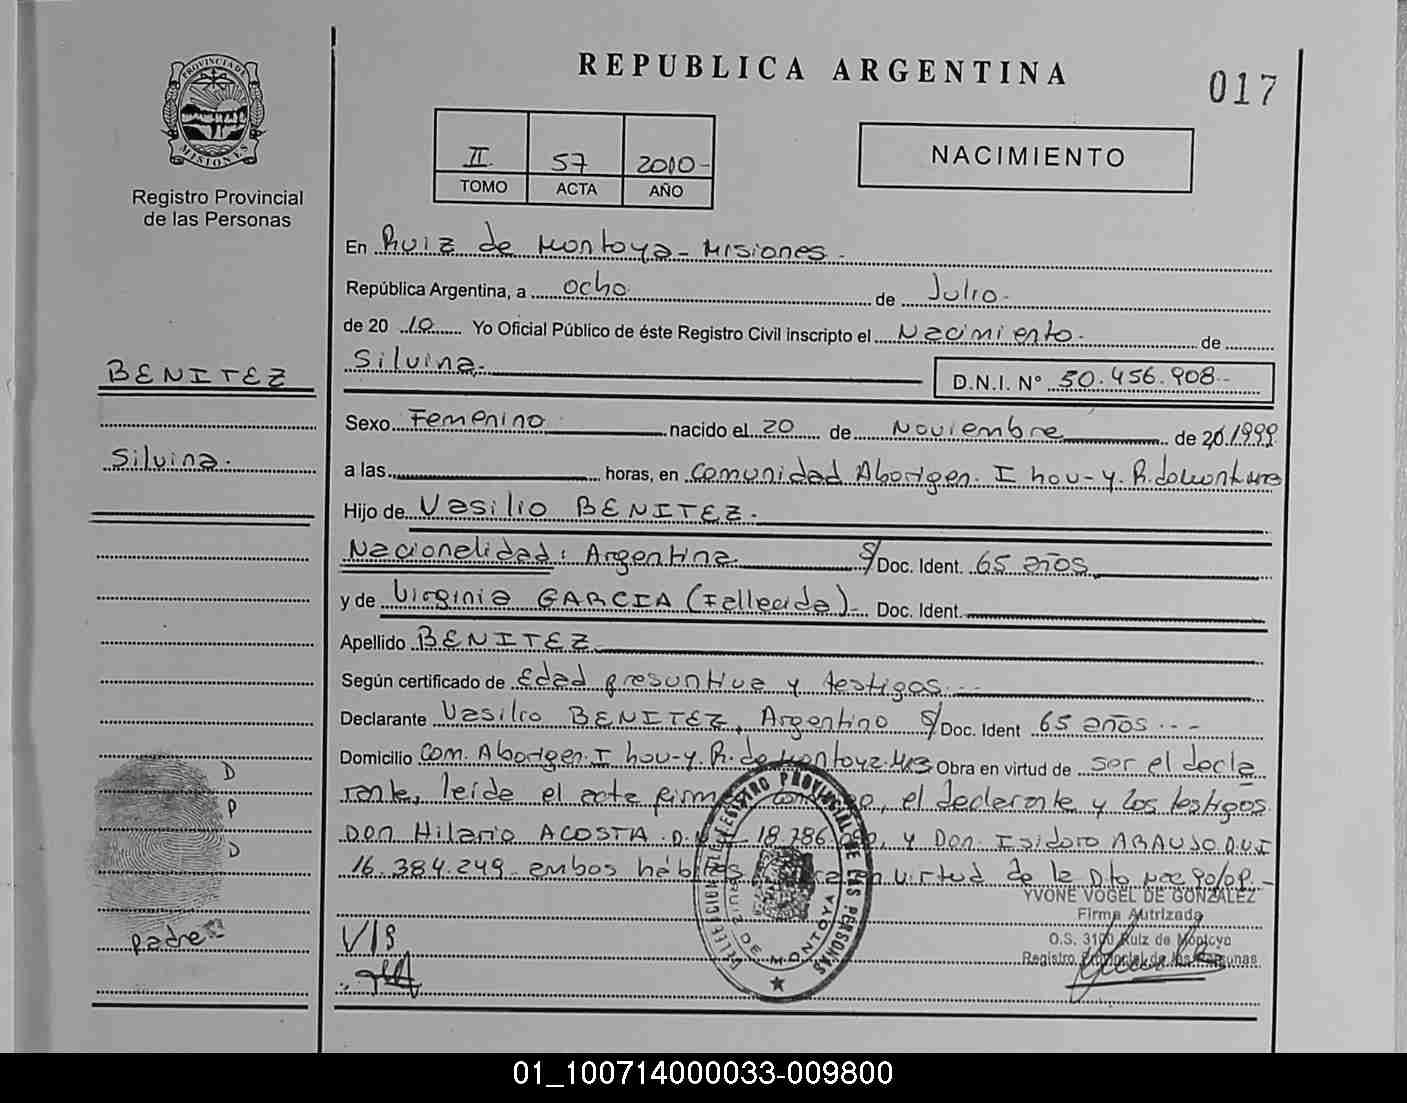 REPUBLICA ARGENTINA
017
PROVINCIA DE MISIONES
Registro Provincial
de las Personas
II 57 2010-
TOMO ACTA AÑO
NACIMIENTO
En Ruiz de Montoya - Misiones -
República Argentina, a ocho de Julio-
de 20 10 Yo Oficial Público de éste Registro Civil inscripto el Nacimiento- de
Silvina.-
D.N.I. N° 50.456.908--
BENITEZ
Silvina.
Sexo Femenino nacido el 20 de Noviembre de 20 1999
a las horas, en Comunidad Aborigen I hou-y R.
Hijo de Vasilio BENITEZ.
Nacionalidad: Argentina S/Doc. Ident. 65 años
y de Virginia GARCIA (Fallecida)- Doc. Ident.
Apellido BENITEZ
Según certificado de Edad presuntiva y testigos.--
Declarante Vasilio BENITEZ, Argentino S/Doc. Ident 65 años --
Domicilio Com. Aborigen I hou-y R. de Montoya Obra en virtud de ser el decla
rante, leida el acta conmigo, el declarante y los testigos
Don Hilario ACOSTA y Don Isidoro ARAUJO D.N.I
16.384.249 ambos hábiles virtud de la Dto
YVONE VOGEL DE GONZALEZ
Firma Autrizada
O.S. 3100 Ruiz de Montoya
Registro Provincial de las Personas
DELEGACION REGISTRO PROVINCIAL DE LAS PERSONAS
RUIZ DE MONTOYA
D
P
D
padre
01_100714000033-009800